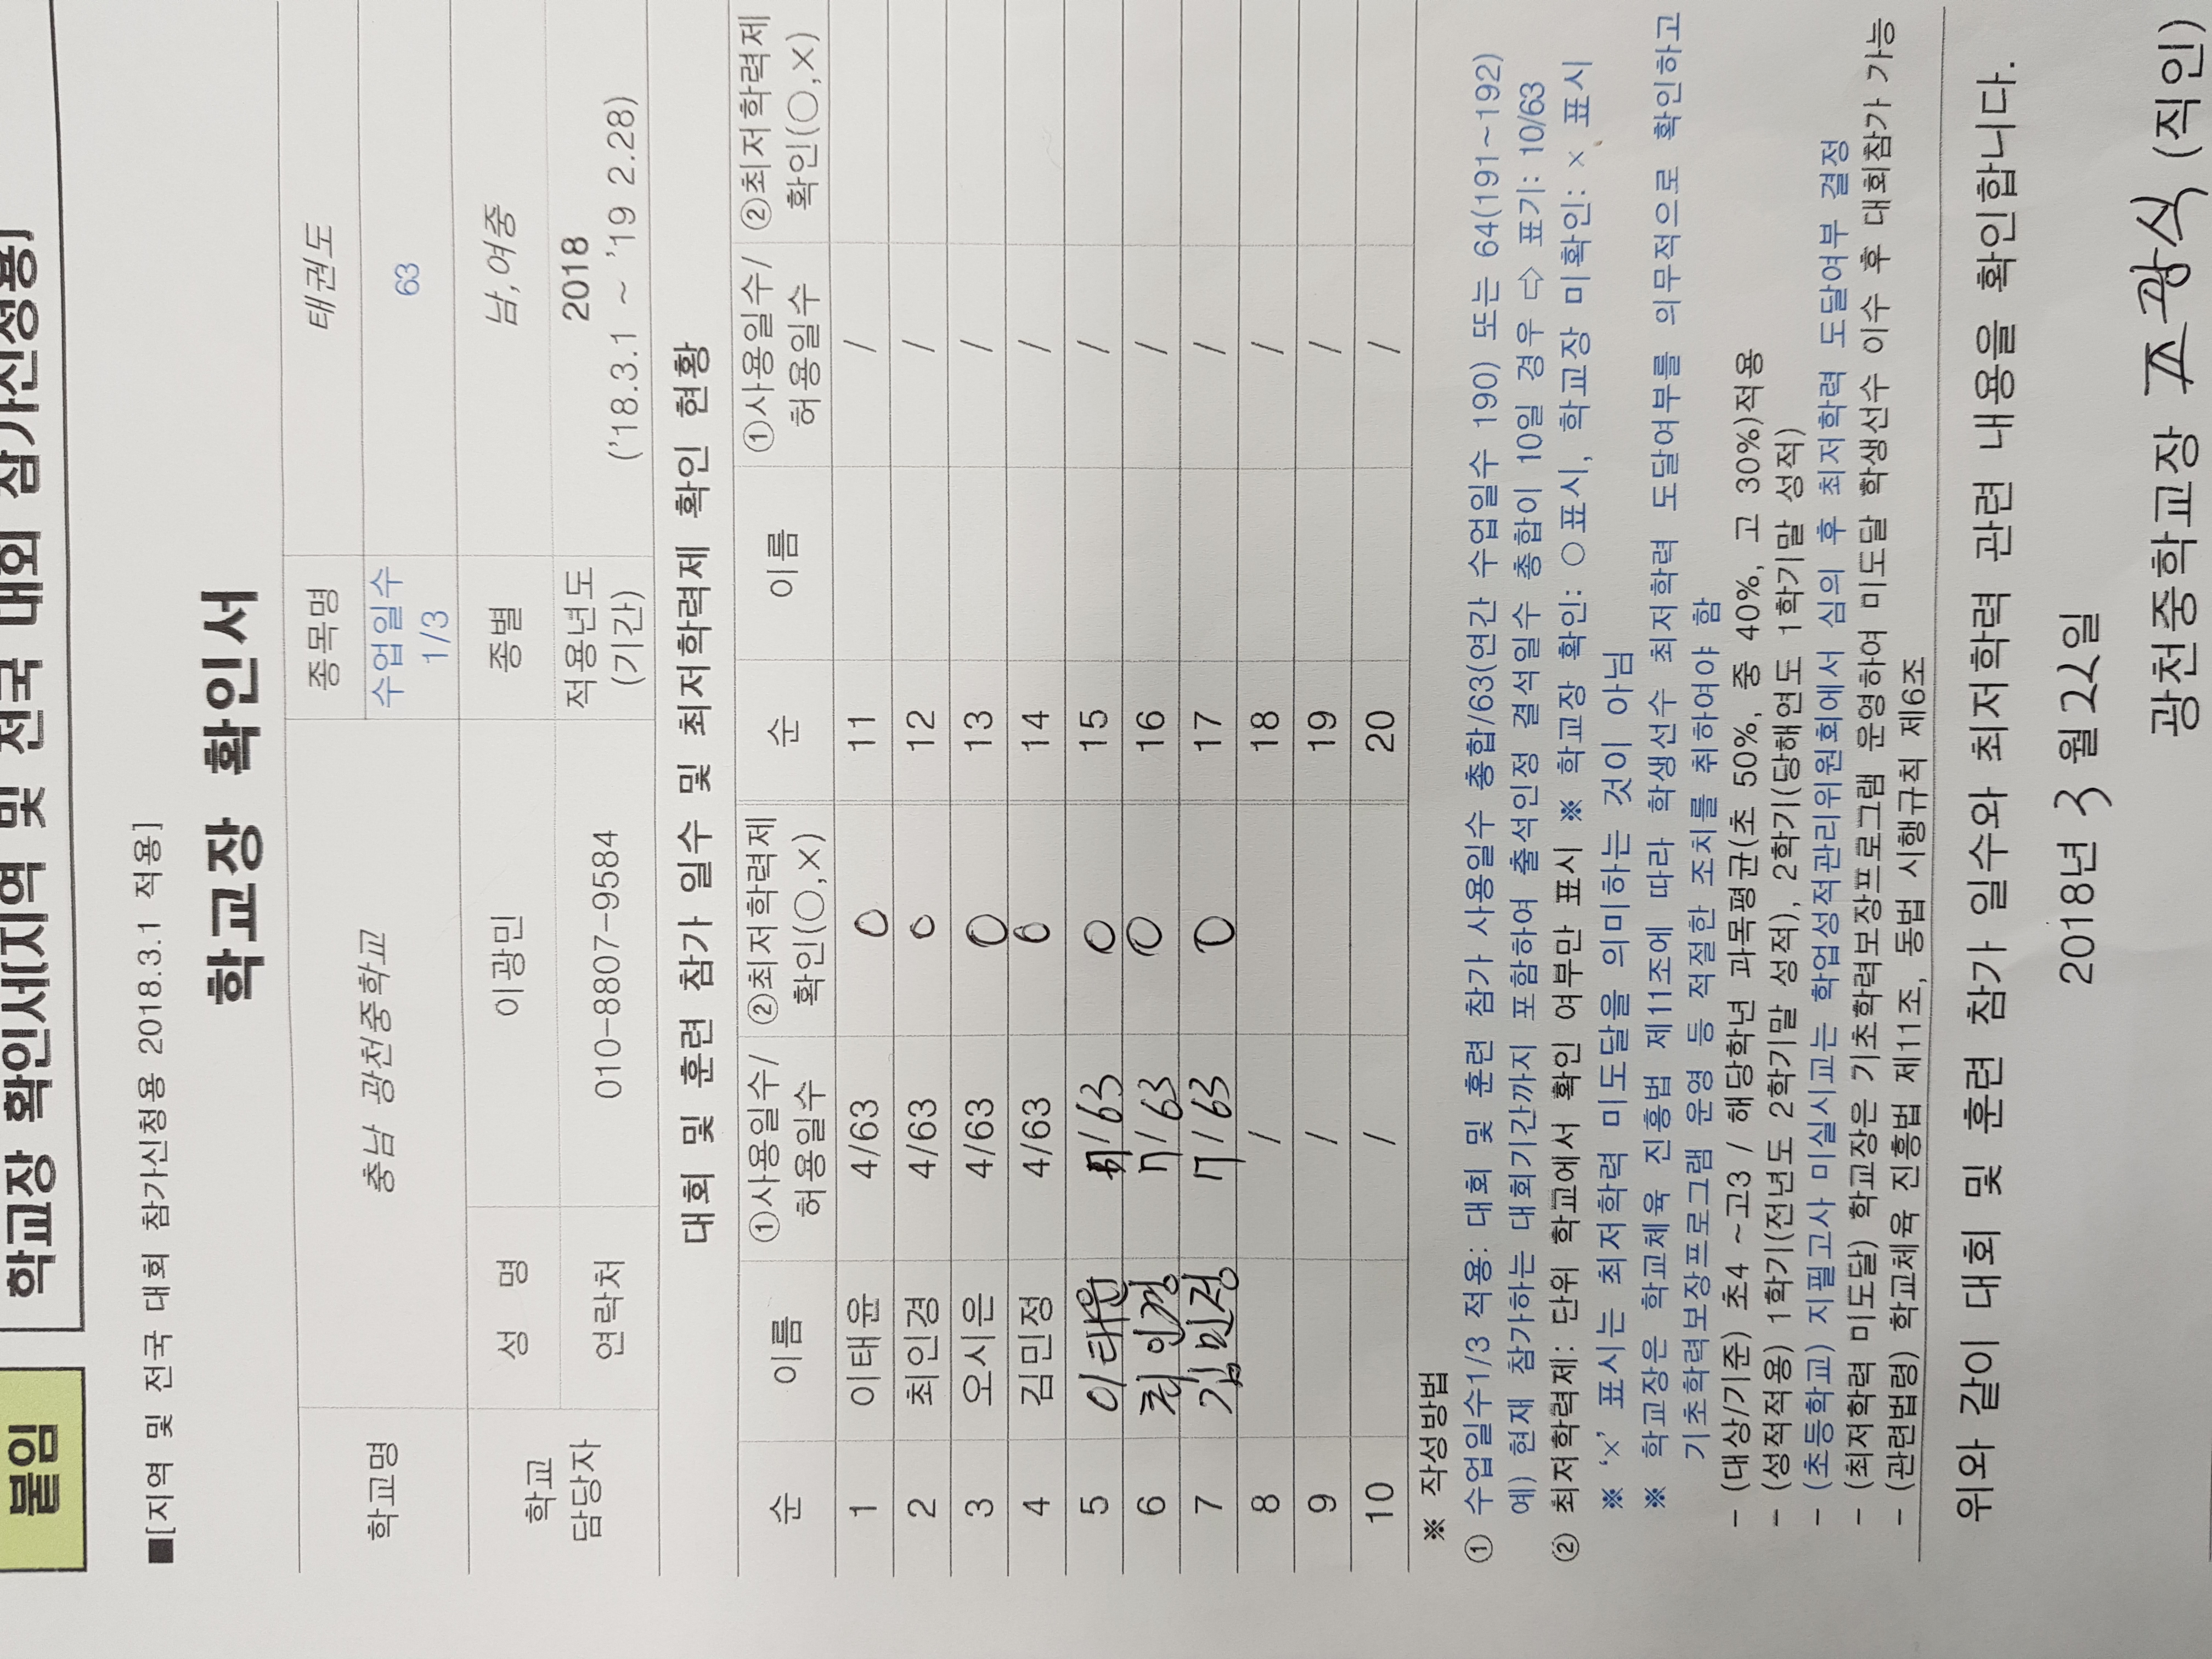 붙임
학교장 확인서(지역 및 전국 대회 참가신청용)
■[지역 및 전국 대회 참가신청용 2018.3.1 적용]
학교장 확인서
학교명 충남 광천중학교 종목명 태권도
수업일수 1/3 63
학교 담당자 성 명 이광민 종별 남,여중
연락처 010-8807-9584 적용년도 (기간) 2018 ('18.3.1 ~ '19 2.28)
대회 및 훈련 참가 일수 및 최저학력제 확인 현황
순 이름 ①사용일수/허용일수 ②최저학력제 확인(○,×) 순 이름 ①사용일수/허용일수 ②최저학력제 확인(○,×)
1 이태윤 4/63 ○ 11 /
2 최인경 4/63 ○ 12 /
3 오시은 4/63 ○ 13 /
4 김민정 4/63 ○ 14 /
5 이태윤 /63 ○ 15 /
6 최인경 7/63 ○ 16 /
7 김민정 7/63 ○ 17 /
8 / 18 /
9 / 19 /
10 / 20 /
※ 작성방법
① 수업일수1/3 적용: 대회 및 훈련 참가 사용일수 총합/63(연간 수업일수 190) 또는 64(191~192)
예) 현재 참가하는 대회기간까지 포함하여 출석인정 결석일수 총합이 10일 경우 ⇨ 표기: 10/63
② 최저학력제: 단위 학교에서 확인 여부만 표시 ※ 학교장 확인: ○표시, 학교장 미확인: × 표시
※ '×' 표시는 최저학력 미도달을 의미하는 것이 아님
※ 학교장은 학교체육 진흥법 제11조에 따라 학생선수 최저학력 도달여부를 의무적으로 확인하고
기초학력보장프로그램 운영 등 적절한 조치를 취하여야 함
- (대상/기준) 초4 ~고3 / 해당학년 과목평균(초 50%, 중 40%, 고 30%)적용
- (성적적용) 1학기(전년도 2학기말 성적), 2학기(당해연도 1학기말 성적)
- (초등학교) 지필고사 미실시교는 학업성적관리위원회에서 심의 후 최저학력 도달여부 결정
- (최저학력 미도달) 학교장은 기초학력보장프로그램 운영하여 미도달 학생선수 이수 후 대회참가 가능
- (관련법령) 학교체육 진흥법 제11조, 동법 시행규칙 제6조
위와 같이 대회 및 훈련 참가 일수와 최저학력 관련 내용을 확인합니다.
2018년 3월 22일
광천중학교장 표광식 (직인)